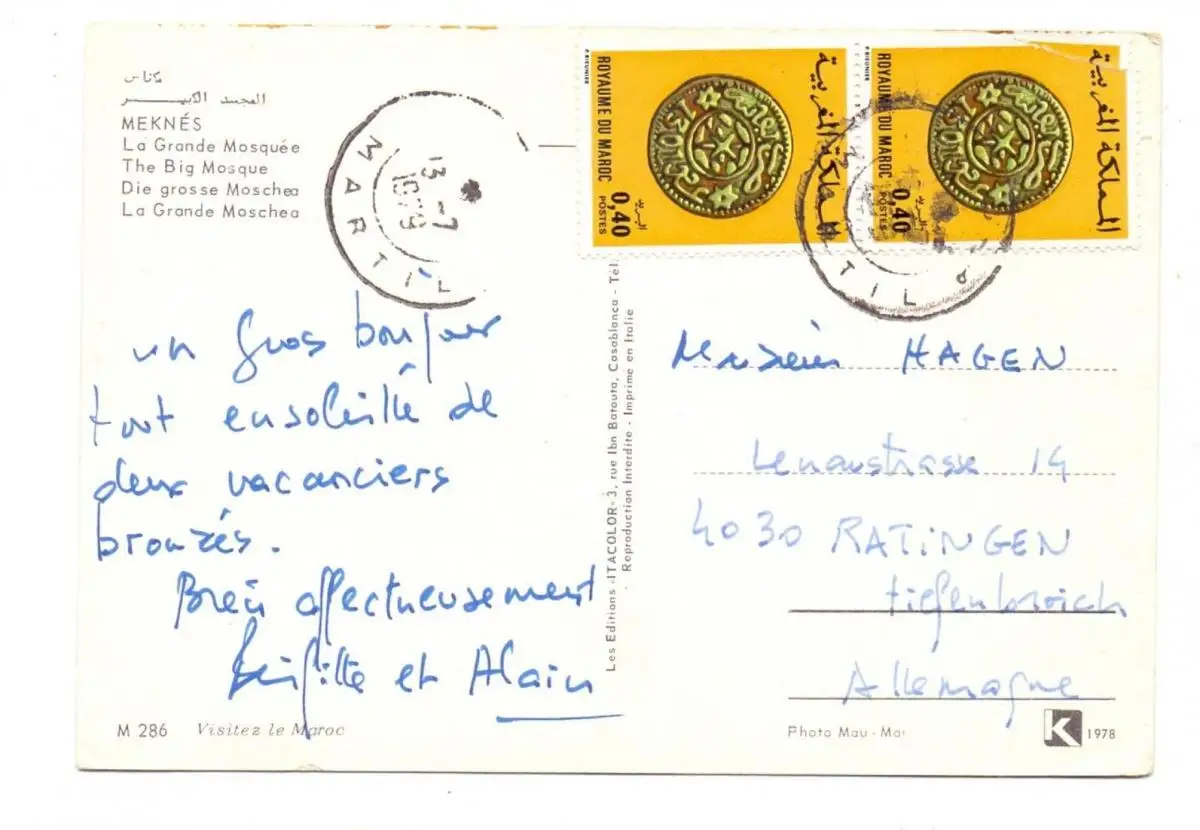 مكناس
المسجد الكبير
MEKNÉS
La Grande Mosquée
The Big Mosque
Die grosse Moschea
La Grande Moschea
MARTIL
13 -7
1979
P. BEUNIER
ROYAUME DU MAROC
0,40
POSTES
البريد
المملكة المغربية
ROYAUME DU MAROC
0,40
POSTES
البريد
المملكة المغربية
TIL
un gros bonjour
tout ensoleillé de
deux vacanciers
bronzés.
Bien affectueusement
Brigitte et Alain
Les Editions «ITACOLOR» 3, rue Ibn Batouta, Casablanca - Tél.
Reproduction Interdite - Imprimé en Italie
Monsieur HAGEN
Lenaustrasse 14
4030 RATINGEN
tiefenbroich
Allemagne
M 286 Visitez le Maroc
Photo Mau - Mar
K 1978